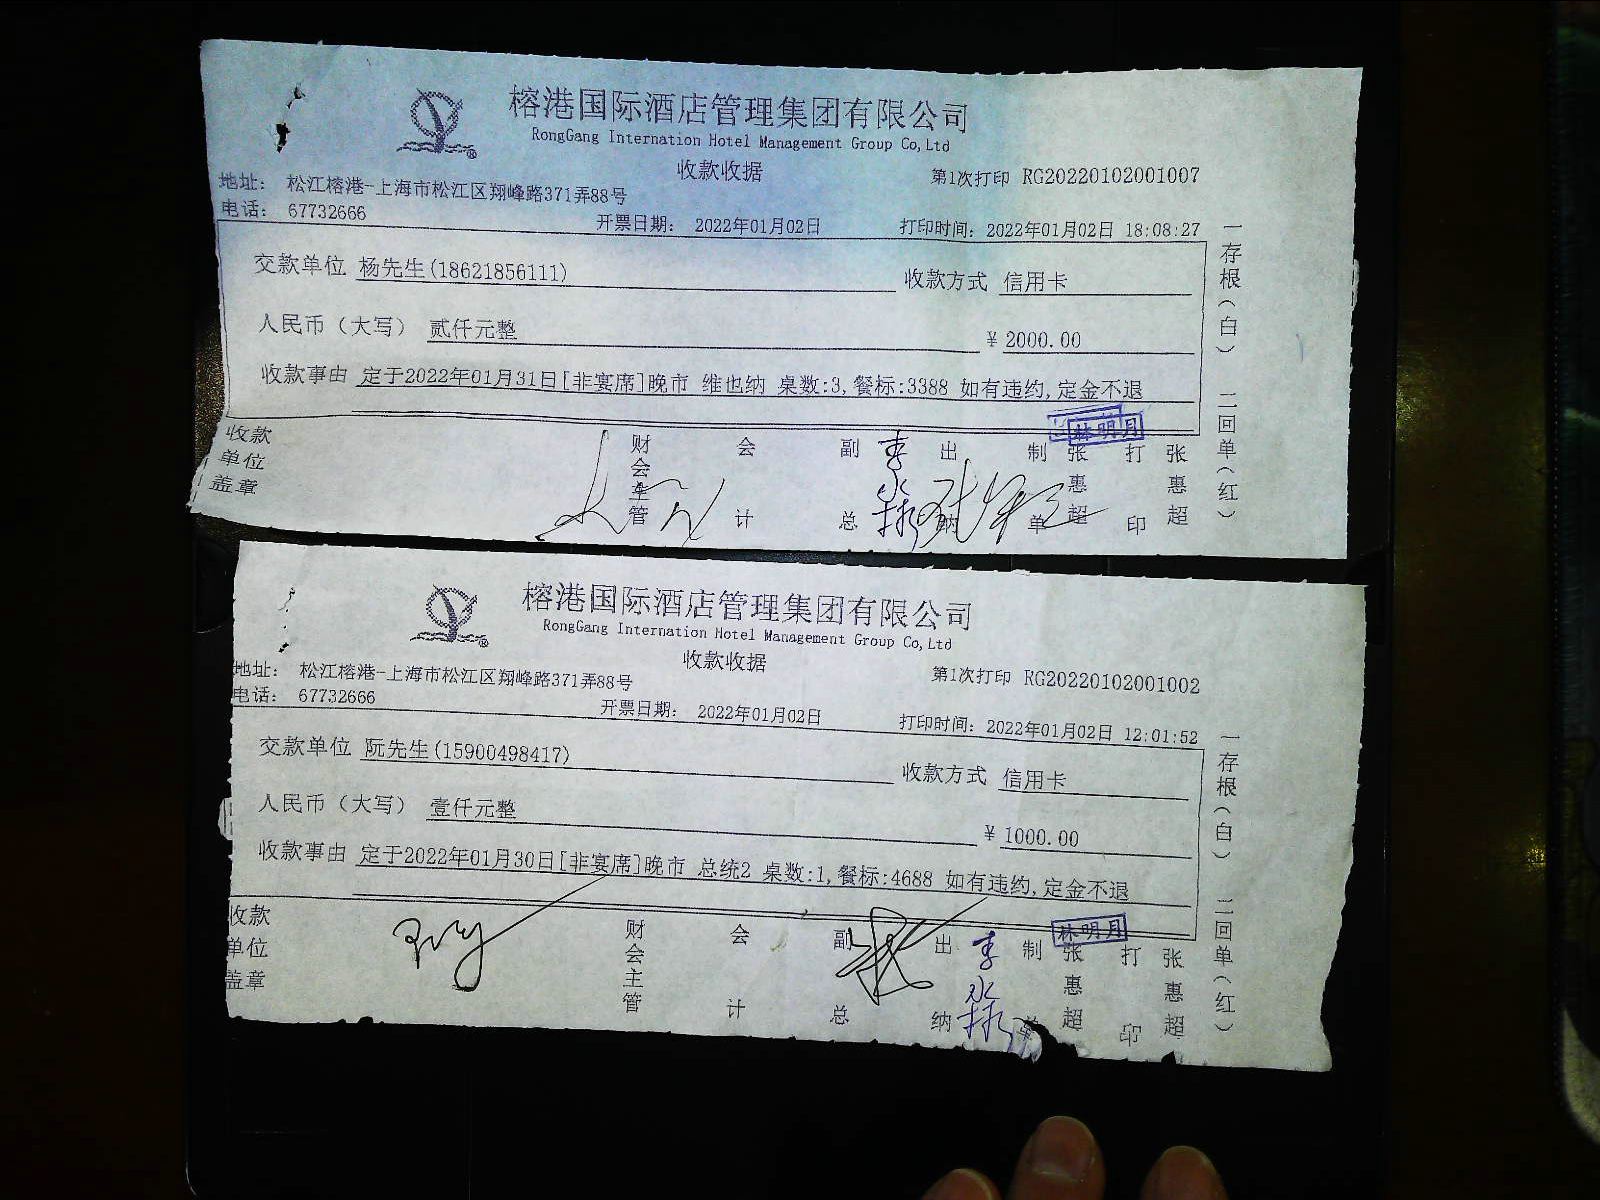 榕港国际酒店管理集团有限公司
RongGang Internation Hotel Management Group Co,Ltd
收款收据
第1次打印 RG20220102001007
地址： 松江榕港-上海市松江区翔峰路371弄88号
电话： 67732666
开票日期： 2022年01月02日
打印时间：2022年01月02日 18:08:27
交款单位 杨先生(18621856111)
收款方式 信用卡
人民币（大写） 贰仟元整
¥ 2000.00
收款事由 定于2022年01月31日[非宴席]晚市 维也纳 桌数:3,餐标:3388 如有违约,定金不退
一存根（白） 二回单（红）
林明月
收款单位盖章
财会主管
会计
副总
李
出纳
制单
张惠超
打印
张惠超
榕港国际酒店管理集团有限公司
RongGang Internation Hotel Management Group Co,Ltd
收款收据
第1次打印 RG20220102001002
地址： 松江榕港-上海市松江区翔峰路371弄88号
电话： 67732666
开票日期： 2022年01月02日
打印时间：2022年01月02日 12:01:52
交款单位 阮先生(15900498417)
收款方式 信用卡
人民币（大写） 壹仟元整
¥ 1000.00
收款事由 定于2022年01月30日[非宴席]晚市 总统2 桌数:1,餐标:4688 如有违约,定金不退
一存根（白） 二回单（红）
林明月
收款单位盖章
财会主管
会计
副总
出纳
李
制单
张惠超
打印
张惠超